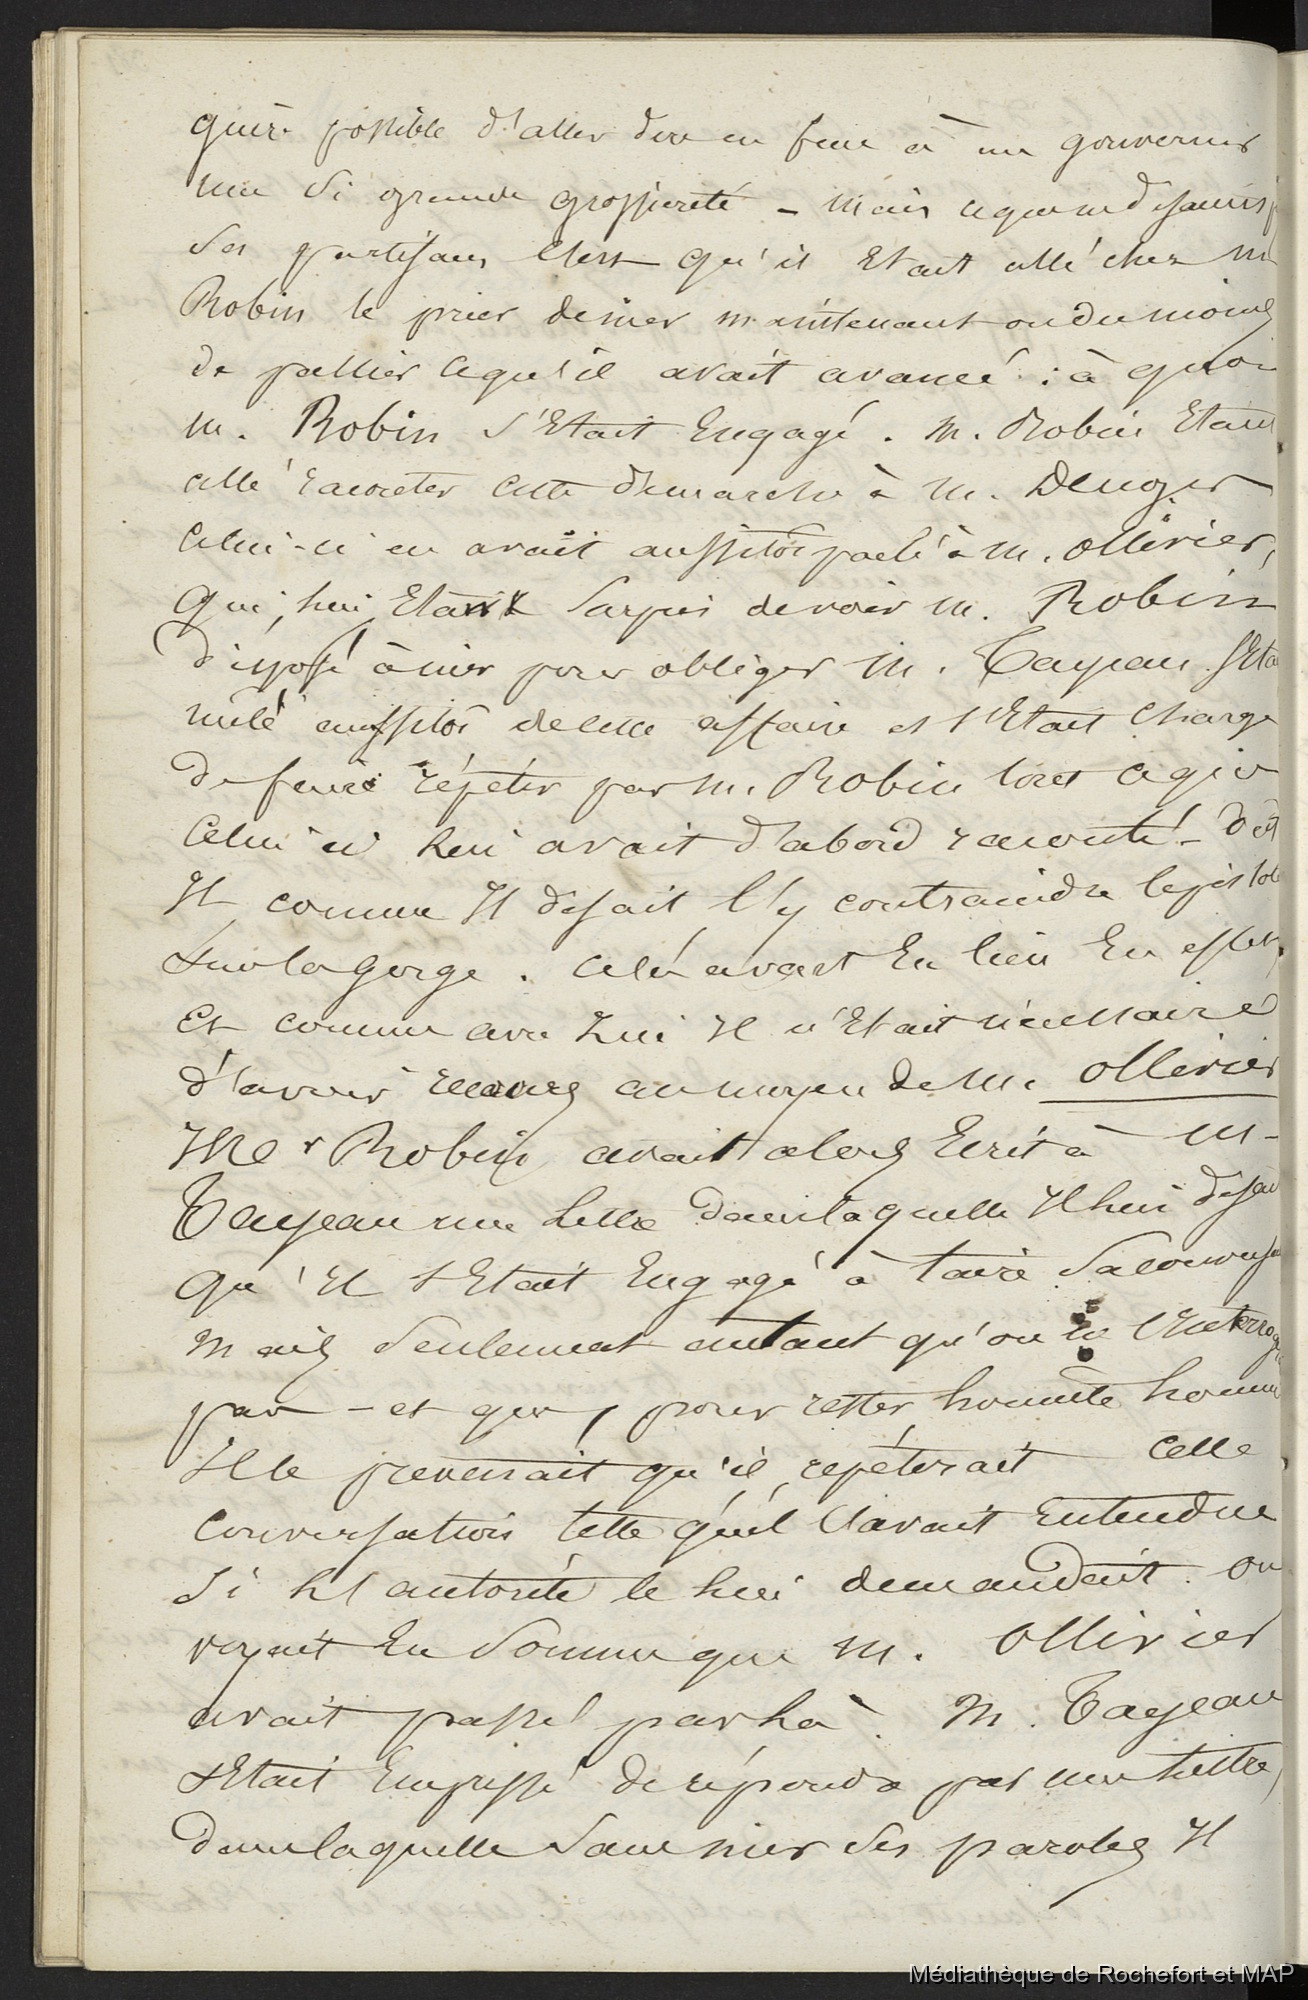 guère possible d'aller dire en face à un gouverneur
une si grande grossiereté - mais ce que me disaient
ses partisans c'est qu'il Etait allé chez M
Robin le prier de nier maintenant ou du moins
de pallier ce qu'il avait avancé : à quoi
M. Robin s'Etait Engagé. M. Robin Etant
allé raconter cette démarche à M.
Celui-ci en avait aussitôt parlé à M. Ollivier,
Qui, lui, Etant surpris de voir M. Robin
disposé à nier pour obliger M. Tayeau s'Etait
mêlé aussitôt de cette affaire et s'Etait Chargé
de faire répéter par M. Robin tout ce que
Celui ci lui avait d'abord raconté - dût
Il comme Il disait l'y contraindre le pistolet
sur la gorge. cela avait Eu lieu En effet,
Et comme avec Lui Il n'Etait nécessaire
d'avoir recours au moyen de M. Ollivier
Mr Robin avait alors Ecrit à M.
Tayeau une lettre dans laquelle Il lui disait
Qu'Il s'Etait Engagé à taire sa conversation
Mais Seulement autant qu'on ne l'Interrogerait
pas - et que, pour rester honnête homme
Il le prevenait qu'il repéterait celle
conversation telle qu'il l'avait Entendue
Si L'autorité le lui demandait. on
voyait En Somme que M. Ollivier
avait passé par là. M. Tayeau
s'Etait Empressé de répondre par une lettre,
dans laquelle Sans nier ses paroles Il
Médiathèque de Rochefort et MAP